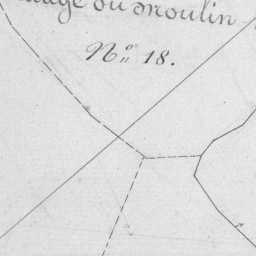 du Moulin
N.º 18.